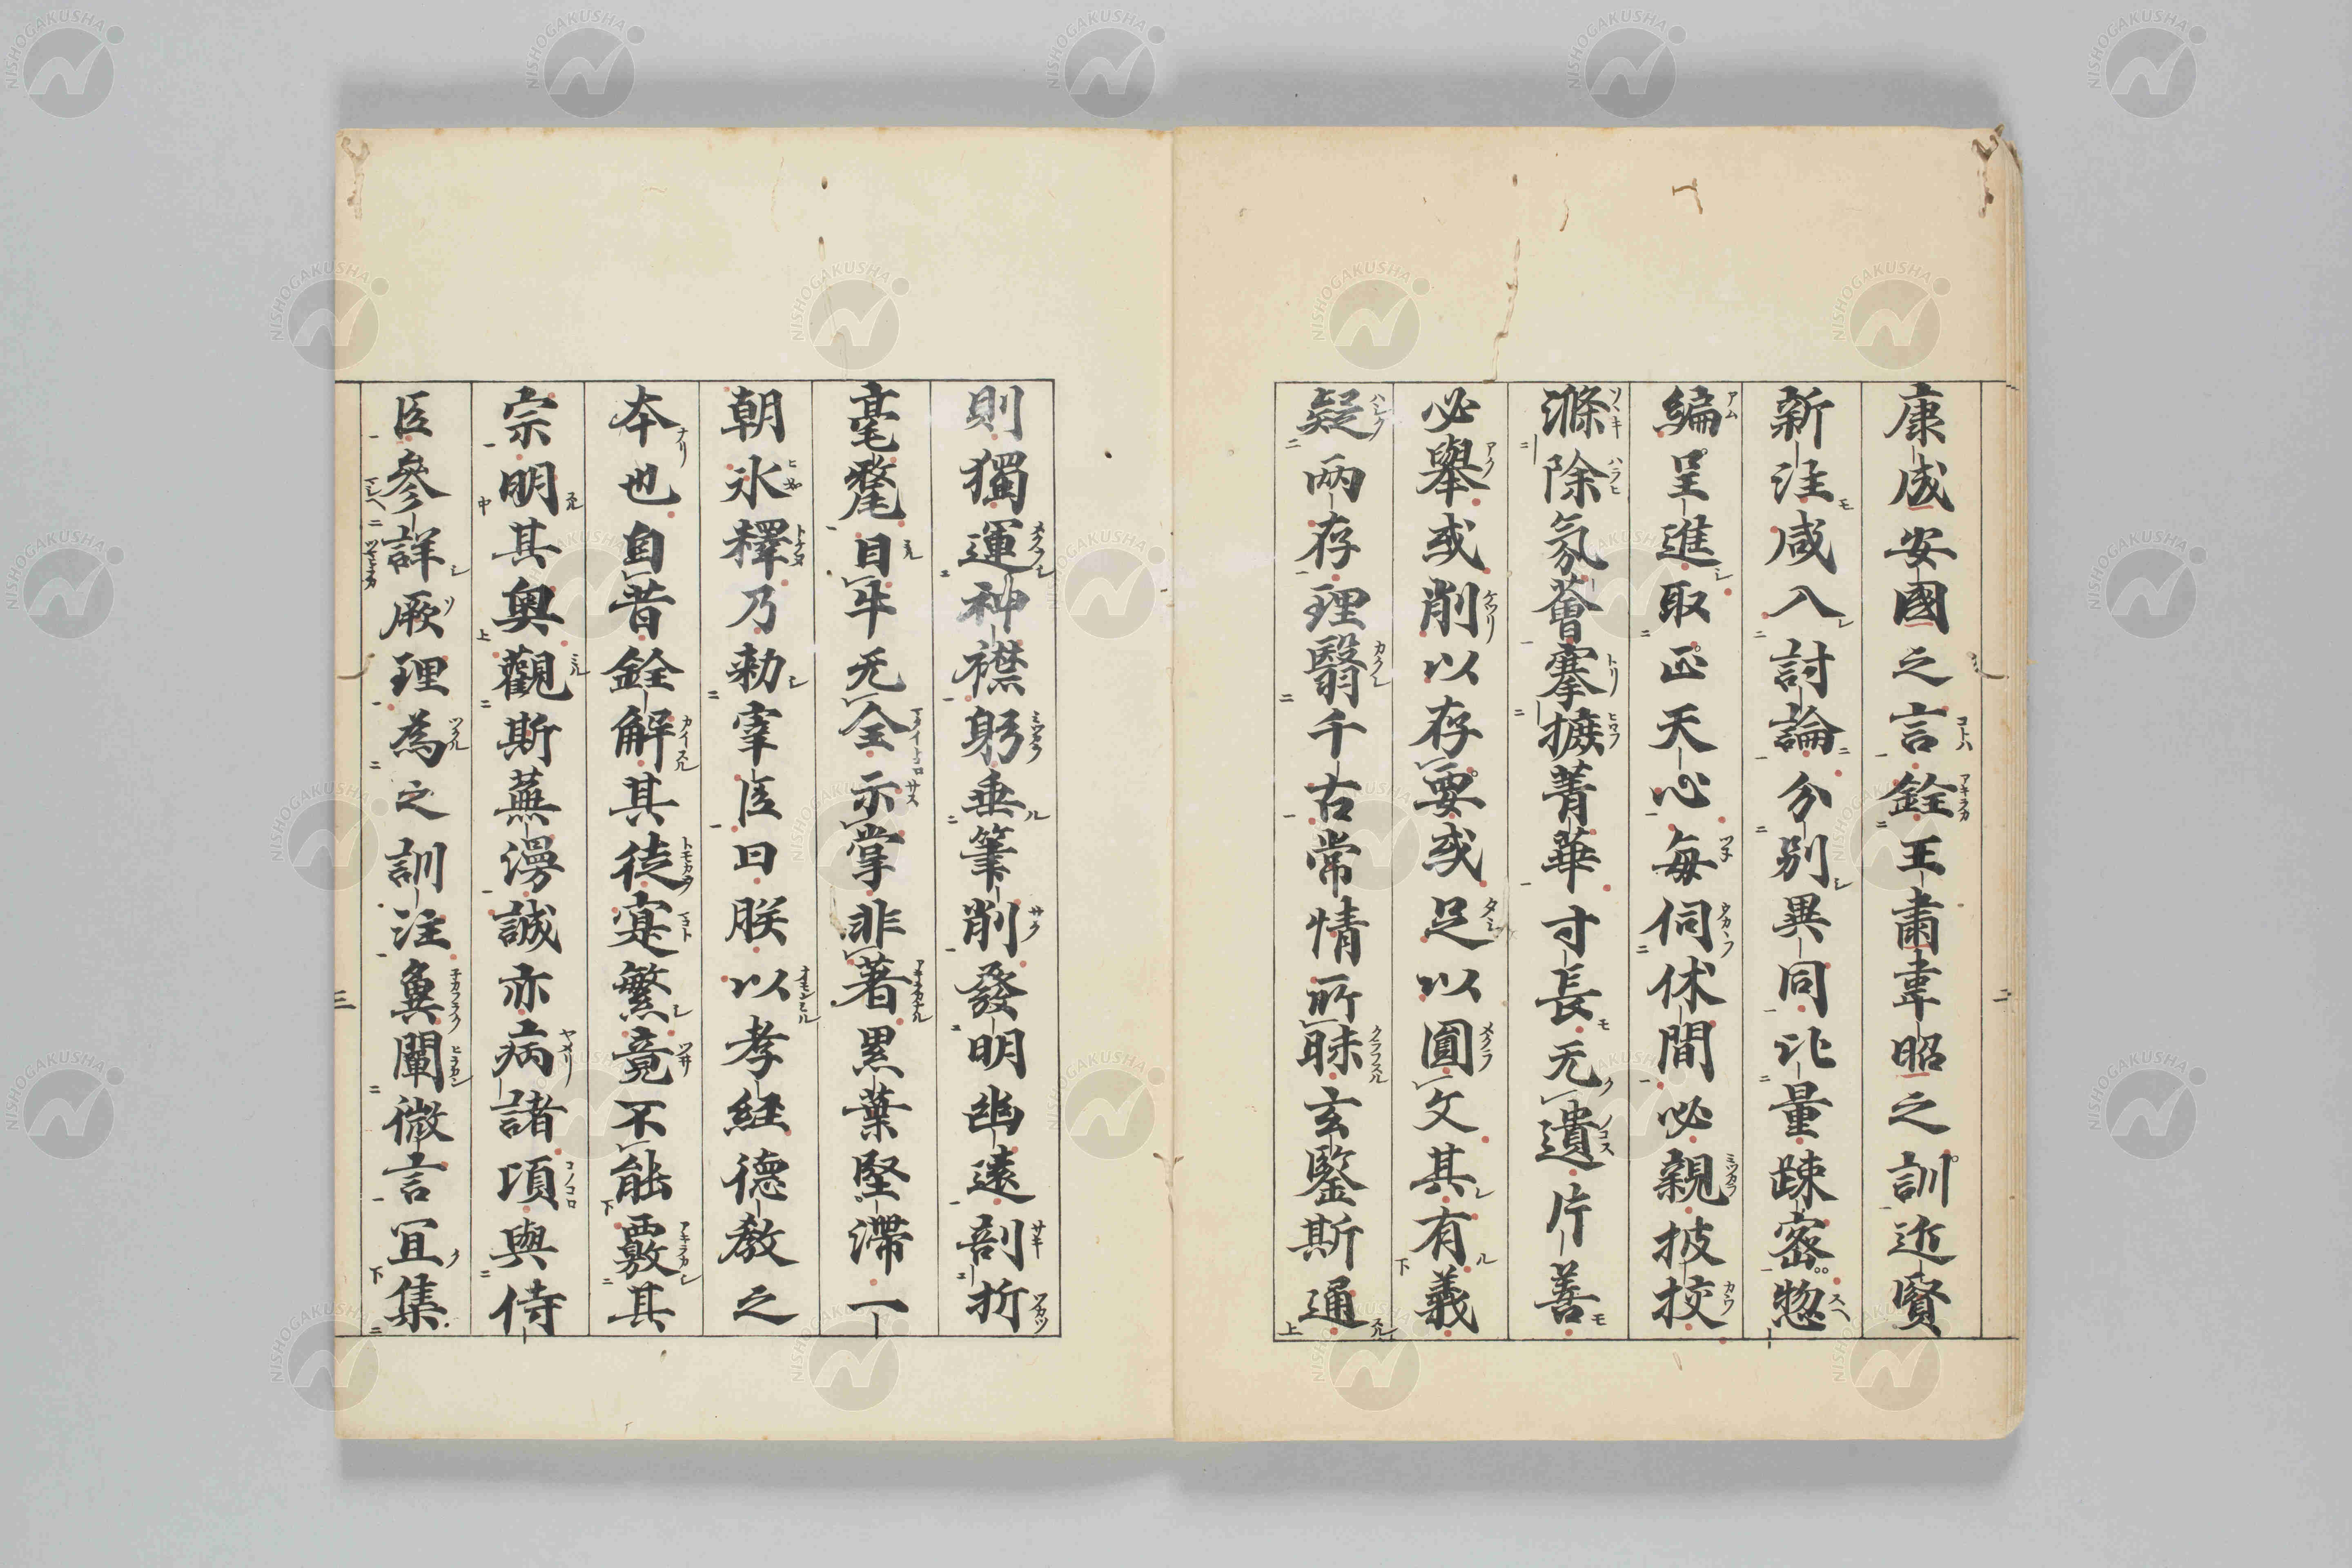 康成安國之言銓王肅韋昭之訓近賢
新注咸入討論分別異同比量踈密惣
編呈進取正天心每伺休間必親披挍
滌除氛薈搴摭菁華寸長无遺片善
必舉或削以存要或足以圓文其有義
疑兩存理翳千古常情所昧玄鑒斯通
則獨運神襟躬垂筆削發明幽遠剖折
毫氂目牛无全示掌非著累葉堅滯一
朝氷釋乃勑宰臣曰朕以孝經德教之
本也自昔銓解其徒寔繁竟不能覈其
宗明其奧觀斯蕪漫誠亦病諸頃與侍
臣參詳厥理為之訓注冀闡微言宜集
二
三
NISHOGAKUSHA